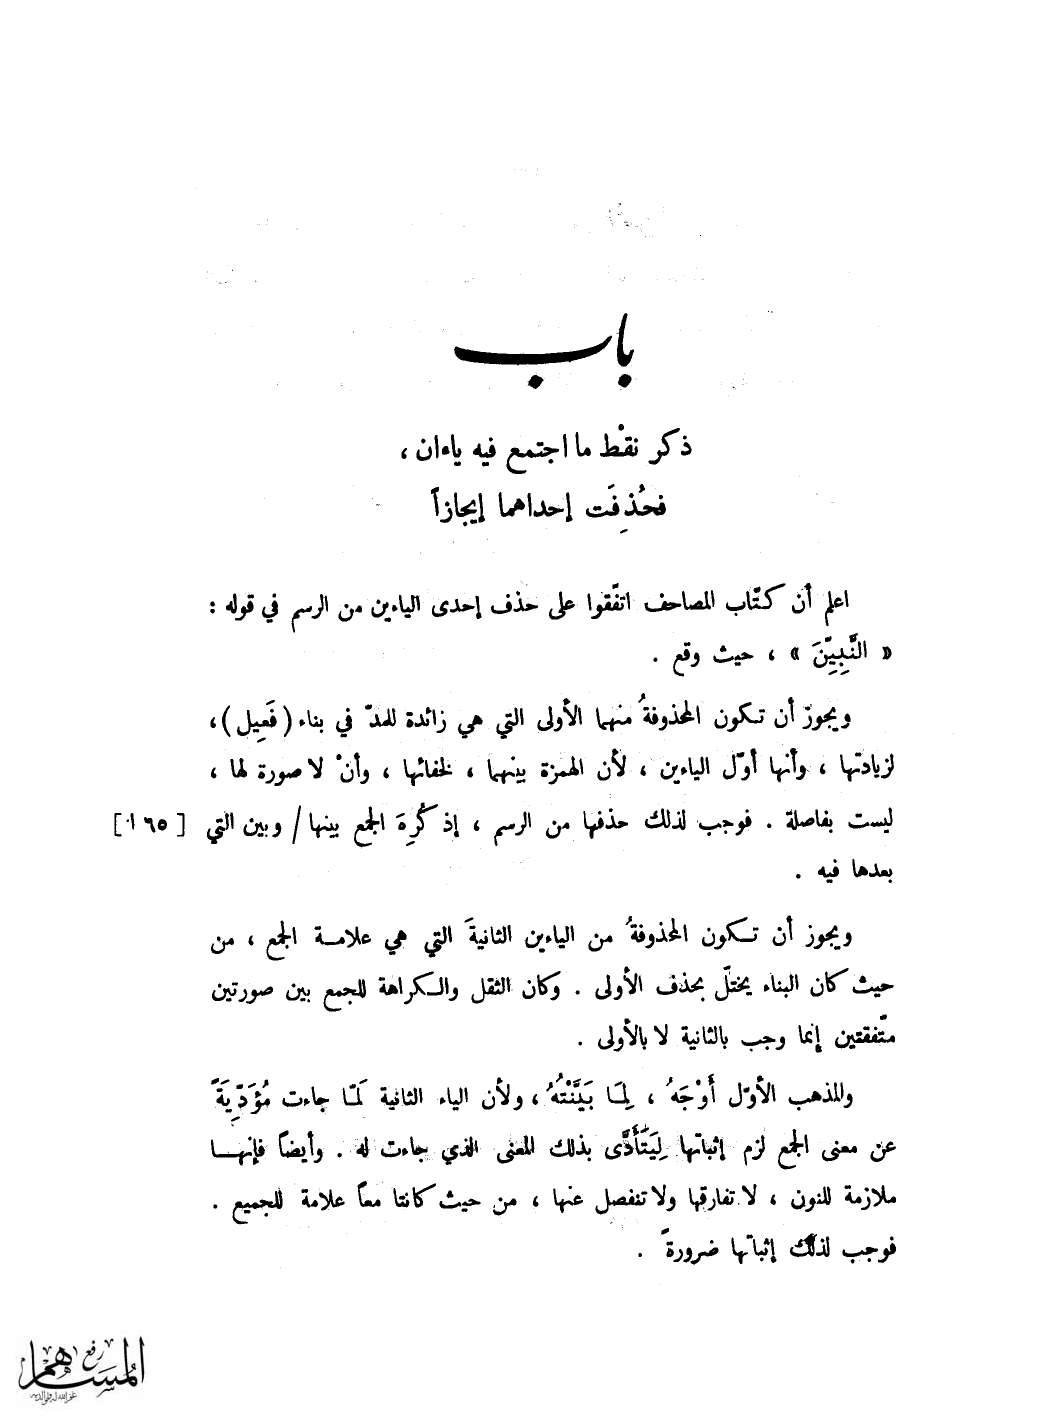 باب
ذكر نقْط ما اجتمع فيه ياءان ،
فحُذِفَت إحداهما إيجازاً
اعلم أن كتّاب المصاحف اتفّقوا على حذف إحدى الياءين من الرسم في قوله :
« النَّبِيِّنَ » ، حيث وقع .
ويجوز أن تكون المحذوفةُ منهما الأولى التي هي زائدة للمدّ في بناء ( فَعِيل ) ،
لزيادتها ، وأنها أوّل الياءين ، لأن الهمزة بينهما ، لخفائها ، وأنْ لا صورة لها ،
ليست بفاصلة . فوجب لذلك حذفها من الرسم ، إذ كُرِهَ الجمع بينها / وبين التي [ ٦٥ ا ]
بعدها فيه .
ويجوز أن تكون المحذوفةُ من الياءين الثانيةَ التي هي علامة الجمع ، من
حيث كان البناء يختلّ بحذف الأولى . وكان الثقل والكراهة للجمع بين صورتين
متّفقتين إنما وجب بالثانية لا بالأولى .
والمذهب الأوّل أَوْجَهُ ، لِمَا بَيَّنْتُهُ ، ولأن الياء الثانية لَمّا جاءت مُؤَدِّيَةً
عن معنى الجمع لزم إثباتها لِيَتَأَدَّى بذلك المعنى الذي جاءت له . وأيضاً فإنهـا
ملازمة للنون ، لا تفارقها ولا تنفصل عنها ، من حيث كانتا معاً علامة للجميع .
فوجب لذلك إثباتها ضرورةً .
رفع
المساهم